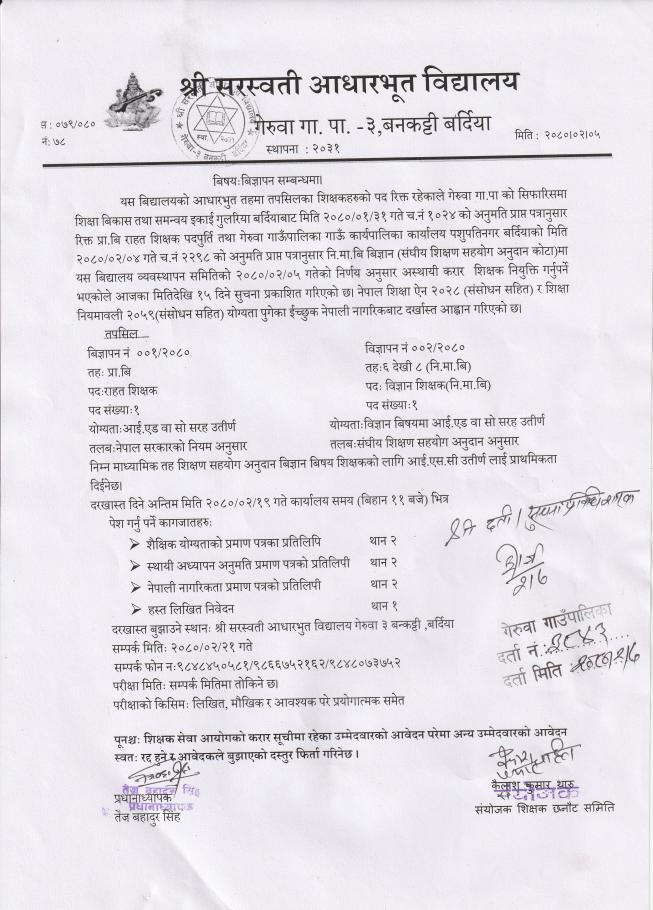 श्री सरस्वती आधारभूत विद्यालय
गेरुवा गा. पा. -३,बनकट्टी बर्दिया
स्थापना : २०३१
प : ०७९/०८०
नं: ७८
मिति : २०८०।०२।०५
बिषयःबिज्ञापन सम्बन्धमा।
यस बिद्यालयको आधारभुत तहमा तपसिलका शिक्षकहरुको पद रिक्त रहेकाले गेरुवा गा.पा को सिफारिसमा
शिक्षा बिकास तथा समन्वय इकाई गुलरिया बर्दियाबाट मिति २०८०/०१/३१ गते च.नं १०२४ को अनुमति प्राप्त पत्रानुसार
रिक्त प्रा.बि राहत शिक्षक पदपुर्ति तथा गेरुवा गाऊँपालिका गाऊँ कार्यपालिका कार्यालय पशुपतिनगर बर्दियाको मिति
२०८०/०२/०४ गते च.नं २२९८ को अनुमति प्राप्त पत्रानुसार नि.मा.बि बिज्ञान (संघीय शिक्षण सहयोग अनुदान कोटा)मा
यस बिद्यालय व्यवस्थापन समितिको २०८०/०२/०५ गतेको निर्णय अनुसार अस्थायी करार शिक्षक नियुक्ति गर्नुपर्ने
भएकोले आजका मितिदेखि १५ दिने सुचना प्रकाशित गरिएको छ। नेपाल शिक्षा ऐन २०२८ (संसोधन सहित) र शिक्षा
नियमावली २०५९(संसोधन सहित) योग्यता पुगेका ईच्छुक नेपाली नागरिकबाट दर्खास्त आह्वान गरिएको छ।
तपसिल
बिज्ञापन नं ००१/२०८० विज्ञापन नं ००२/२०८०
तहः प्रा.बि तहः६ देखी ८ (नि.मा.बि)
पदःराहत शिक्षक पदः विज्ञान शिक्षक(नि.मा.बि)
पद संख्याः१ पद संख्याः१
योग्यताःआई.एड वा सो सरह उतीर्ण योग्यताःविज्ञान बिषयमा आई.एड वा सो सरह उतीर्ण
तलबःनेपाल सरकारको नियम अनुसार तलबःसंघीय शिक्षण सहयोग अनुदान अनुसार
निम्न माध्यामिक तह शिक्षण सहयोग अनुदान बिज्ञान बिषय शिक्षकको लागि आई.एस.सी उतीर्ण लाई प्राथमिकता
दिईनेछ।
दरखास्त दिने अन्तिम मिति २०८०/०२/१९ गते कार्यालय समय (बिहान ११ बजे) भित्र
पेश गर्नु पर्ने कागजातहरुः
➢ शैक्षिक योग्यताको प्रमाण पत्रका प्रतिलिपि थान २
➢ स्थायी अध्यापन अनुमति प्रमाण पत्रको प्रतिलिपी थान २
➢ नेपाली नागरिकता प्रमाण पत्रको प्रतिलिपी थान २
➢ हस्त लिखित निवेदन थान १
दरखास्त बुझाउने स्थानः श्री सरस्वती आधारभुत विद्यालय गेरुवा ३ बन्कट्टी ,बर्दिया
सम्पर्क मितिः २०८०/०२/२१ गते
सम्पर्क फोन नः९८४८४५०५८१/९८६६७५२१६२/९८४८०७३७५२
परीक्षा मितिः सम्पर्क मितिमा तोकिने छ।
परीक्षाको किसिमः लिखित, मौखिक र आवश्यक परे प्रयोगात्मक समेत
गेरुवा गाउँपालिका
दर्ता नं:
दर्ता मिति :
पूनश्चः शिक्षक सेवा आयोगको करार सूचीमा रहेका उम्मेदवारको आवेदन परेमा अन्य उम्मेदवारको आवेदन
स्वतः रद्द हुने र आवेदकले बुझाएको दस्तुर फिर्ता गरिनेछ ।
तेज बहादुर सिंह
प्रधानाध्यापक
प्रधानाध्यापक
तेज बहादुर सिंह
कैलाश कुमार थारु
संयोजक
संयोजक शिक्षक छनौट समिति